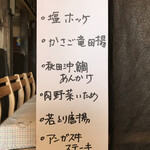 ・塩ホッケ
・かさご竜田揚
・秋田沖鯛
あんかけ
・肉野菜いため
・若どり唐揚
・アンガス牛
ステーキ